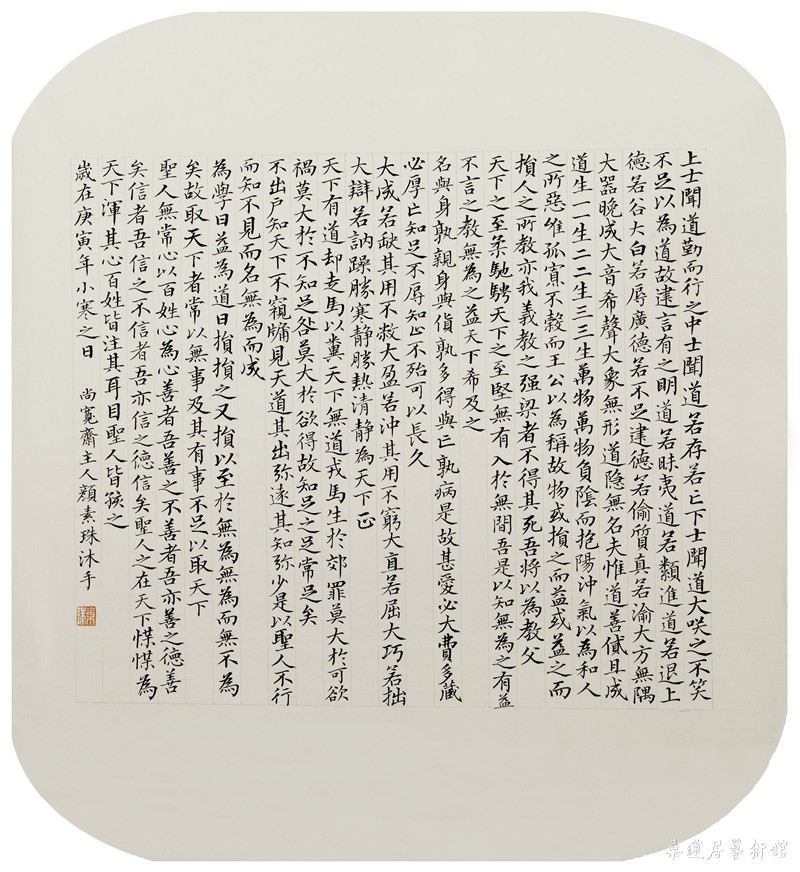 上士聞道勤而行之中士聞道若存若亡下士聞道大咲之不笑
不足以為道故建言有之明道若昧夷道若纇進道若退上
德若谷大白若辱廣德若不足建德若偷質真若渝大方無隅
大器晚成大音希聲大象無形道隱無名夫惟道善貸且成
道生一一生二二生三三生萬物萬物負陰而抱陽沖氣以為和人
之所惡惟孤寡不穀而王公以為稱故物或損之而益或益之而
損人之所教亦我義教之强梁者不得其死吾將以為教父
天下之至柔馳騁天下之至堅無有入於無間吾是以知無為之有益
不言之教無為之益天下希及之
名與身孰親身與貨孰多得與亡孰病是故甚愛必大費多藏
必厚亡知足不辱知止不殆可以長久
大成若缺其用不敝大盈若沖其用不窮大直若屈大巧若拙
大辯若訥躁勝寒静勝熱清静為天下正
天下有道却走馬以糞天下無道戎馬生於郊罪莫大於可欲
禍莫大於不知足咎莫大於欲得故知足之足常足矣
不出户知天下不窺牖見天道其出弥遠其知弥少是以聖人不行
而知不見而名無為而成
為學日益為道日損損之又損以至於無為無為而無不為
矣故取天下者常以無事及其有事不足以取天下
聖人無常心以百姓心為心善者吾善之不善者吾亦善之德善
矣信者吾信之不信者吾亦信之德信矣聖人之在天下惵惵為
天下渾其心百姓皆注其耳目聖人皆孩之
歲在庚寅年小寒之日 尚寬齋主人顏素珠沐手
桑蓮居藝術館